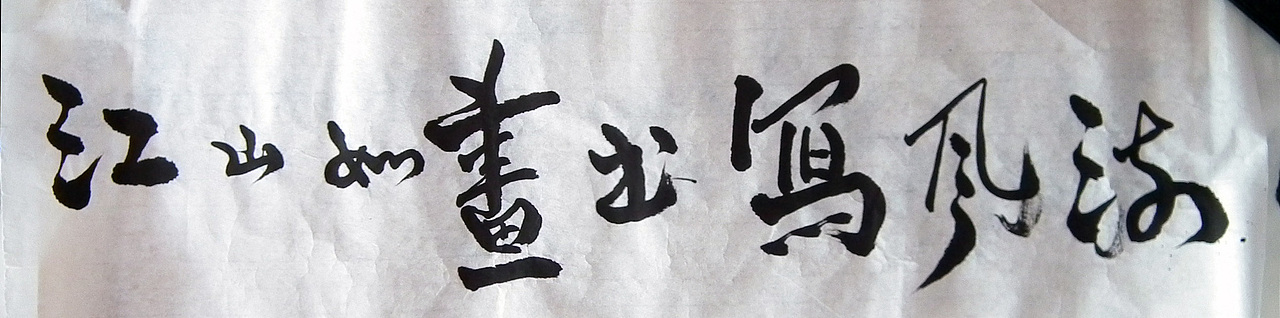 江山如畫书寫风流